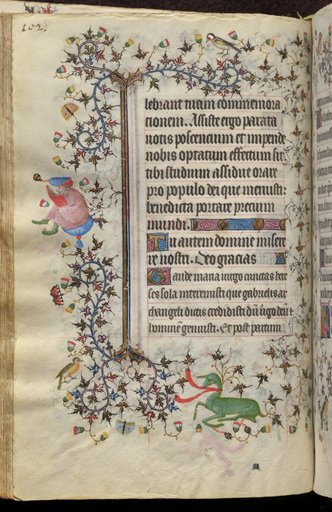 lebrant tuam commemora
tionem. Assiste ergo parata
votis poscencium et impende
nobis optatum effectum sit
tibi studium assidue orare
pro populo dei que meruisti
benedicta portare precium
mundi.
Tu autem domine miserere
re nostri. Deo gracias
Gaude maria virgo cunctas here
ses sola interemisti que gabrielis ar
changeli dictis credidisti dum virgo deum
et hominem genuisti. Et post partum